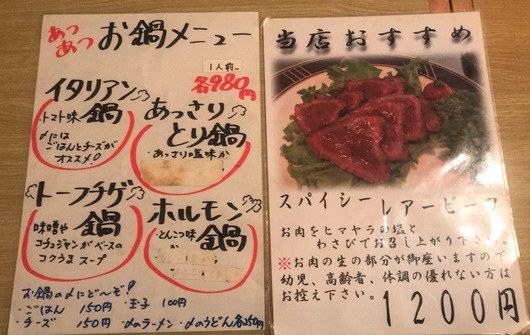 あつあつ お鍋メニュー
1人前~
各980円
イタリアン鍋
・トマト味
〆には
ごはんとチーズが
オススメ!
あっさり
とり鍋
・あっさり塩味か
トーフチゲ鍋
味噌や
コチュジャンがベースの
コクうまスープ
ホルモン鍋
・とんこつ味
か
お鍋の〆にど〜ぞ!
・ごはん 150円 ・玉子 100円
・チーズ 150円 ・〆のラーメン・〆のうどん各250円
当店おすすめ
スパイシーレアービーフ
お肉をヒマヤラの塩と
わさびでお召し上がり下さい。
※お肉の生の部分が御座いますので
幼児、高齢者、体調の優れない方は
お控え下さい。
1200円